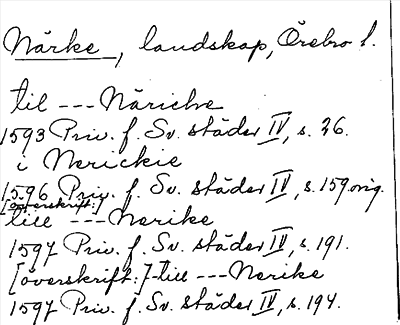 Närke, landskap, Örebro l.
til --- Näriche
1593 Priv. f. Sv. städer IV, s. 26.
i Nerickie
1596 Priv. f. Sv. städer IV, s. 159 orig.
[överskrift:]
till --- Nerike
1597 Priv. f. Sv. städer IV, s. 191.
[överskrift:] till --- Nerike
1597 Priv. f. Sv. städer IV, s. 194.